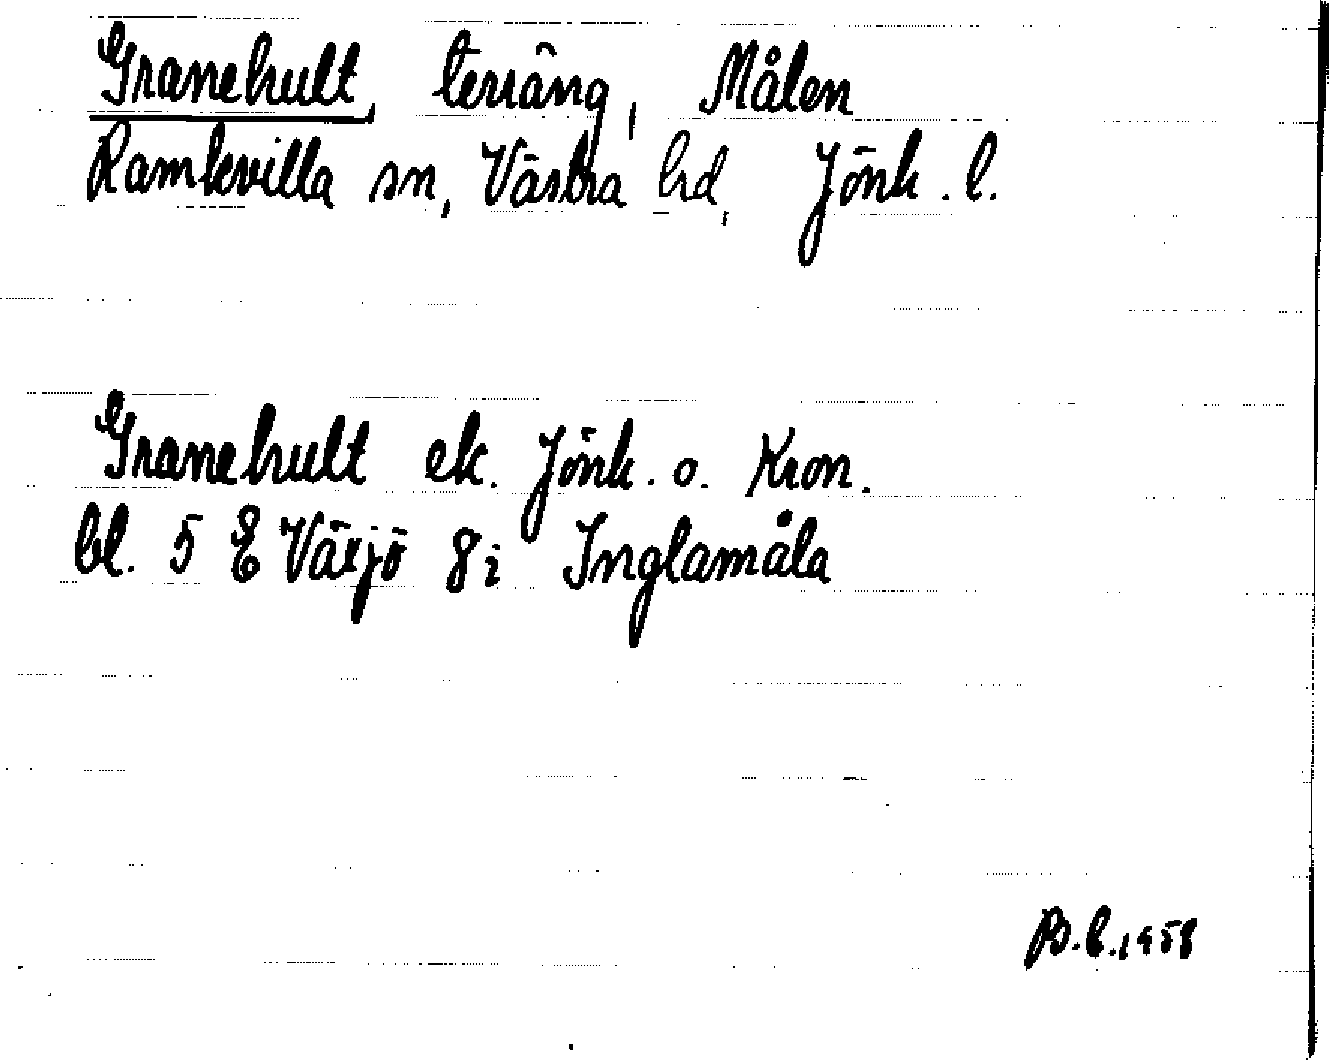 Granehult, terräng, Målen
Ramkvilla sn, Västra hd, Jönk. l.
Granehult ek. Jönk. o. Kron.
bl. 5 E Växjö 8 i Inglamåla
B.L. 1958